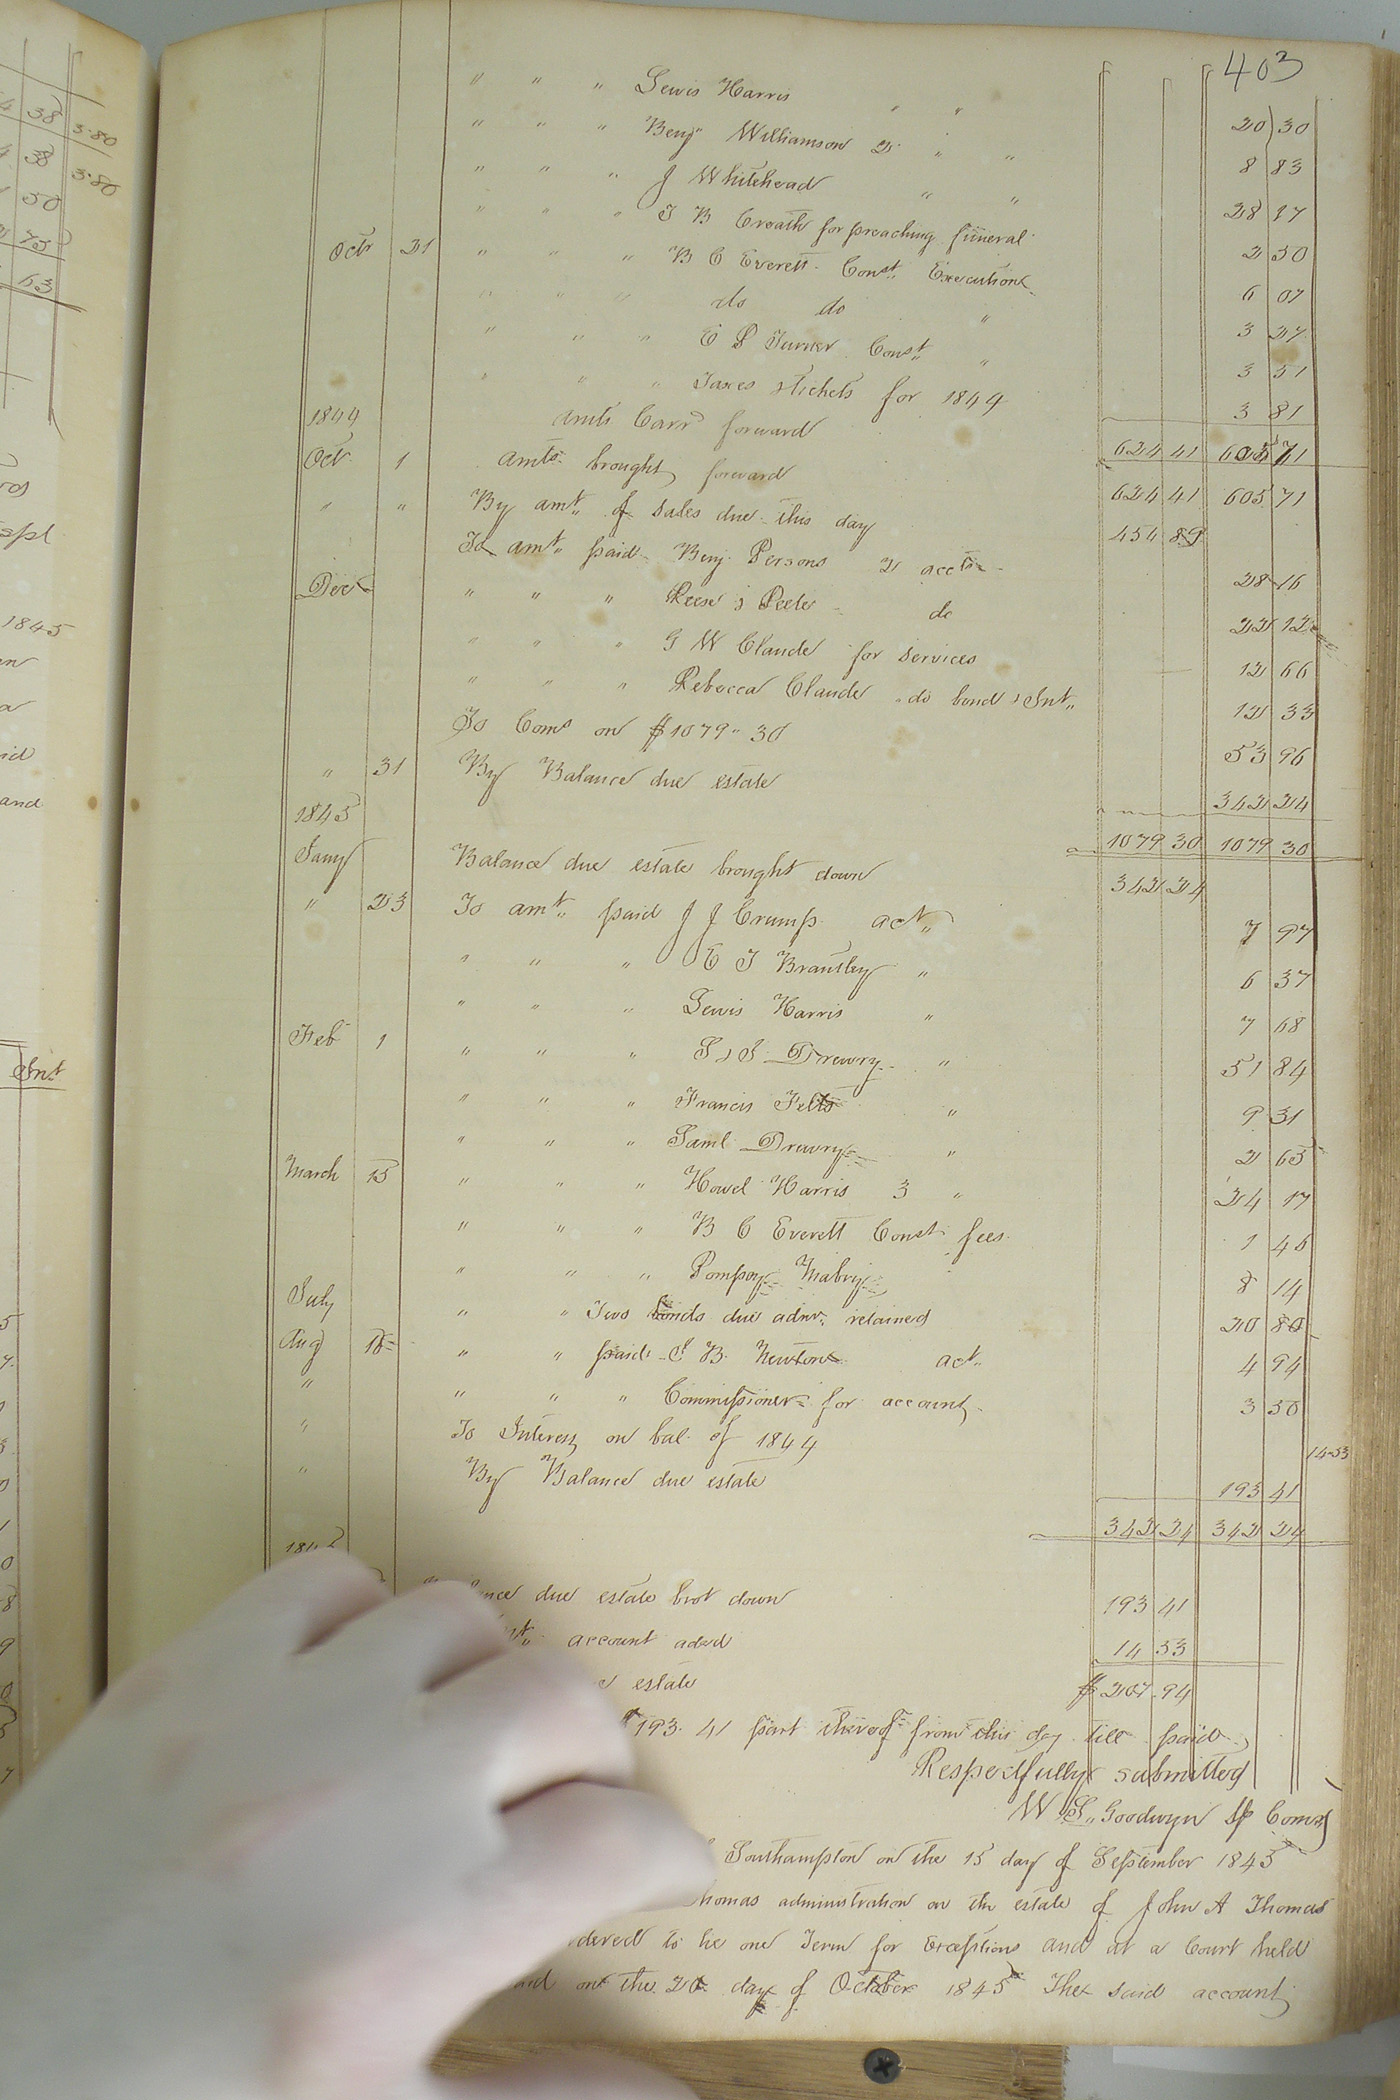 403
" " " Lewis Harris " " 20 30
" " " Benj Williamson 2 " " 8 83
" " " J Whitehead " " 28 17
" " " J B Croath for preaching funeral 2 50
Oct 21 " " " B C Everett Const. Executions 6 07
" " " do do " 3 27
" " " E P Turner Const " 3 51
" " " Taxes & tickets for 1844 3 81
1844 amts Carr forward 624 41 605 71
Oct 1 amts brought forward 624 41 605 71
" " By amt of sales due this day 454 89
To amt paid Benj Persons 2 accts 28 16
Decr " " " Reese & Peete do 22 12
" " " G W Claude for services 12 66
" " " Rebecca Claude do bond & Int 12 33
To Coms on $1079 " 30 53 96
" 31 By Balance due estate 342 24
1845 1079 30 1079 30
Jany Balance due estate brought down 342 24
" 23 To amt paid J J Crump act 7 97
" " " E T Brantley " 6 37
" " " Lewis Harris " 7 68
Feb 1 " " " S & J Drewry " 51 84
" " " Francis Felts " 9 31
" " " Saml Drewry " 2 65
March 15 " " " Howel Harris 3 " 24 17
" " " B C Everett Const fees 1 46
" " " Pompey Mabry 8 14
July " " Two bonds due admr retained 20 80
Aug 18 " " paid J B Newton act 4 94
" " " " Commissioner for account 3 50
" To Interest on bal of 1844 14.53
" By Balance due estate 193 41
342 24 342 24
1845
due estate brot down 193 41
account added 14 53
estate $ 207 94
$193.41 part thereof from this day till paid
Respectfully submitted
W S Goodwyn Sp Comr
Southampton on the 15 day of September 1845
administration on the estate of John A Thomas
to be one Term for Exceptions and at a Court held
on the 20 day of October 1845 The said account
38 3.80
38 3.80
50
75
63
1845
and
Int